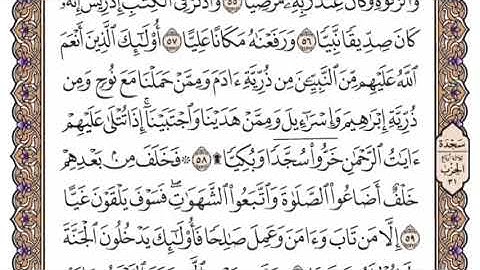 وَالزَّكَوٰةِ وَكَانَ عِندَ رَبِّهِۦ مَرْضِيًّا ٥٥ وَٱذْكُرْ فِى ٱلْكِتَٰبِ إِدْرِيسَ إِنَّهُۥ
كَانَ صِدِّيقًا نَّبِيًّا ٥٦ وَرَفَعْنَٰهُ مَكَانًا عَلِيًّا ٥٧ أُو۟لَٰٓئِكَ ٱلَّذِينَ أَنْعَمَ
ٱللَّهُ عَلَيْهِم مِّنَ ٱلنَّبِيِّـۧنَ مِن ذُرِّيَّةِ ءَادَمَ وَمِمَّنْ حَمَلْنَا مَعَ نُوحٍ وَمِن
ذُرِّيَّةِ إِبْرَٰهِيمَ وَإِسْرَٰٓءِيلَ وَمِمَّنْ هَدَيْنَا وَٱجْتَبَيْنَآ ۚ إِذَا تُتْلَىٰ عَلَيْهِمْ
ءَايَٰتُ ٱلرَّحْمَٰنِ خَرُّوا۟ سُجَّدًا وَبُكِيًّا ۩ ٥٨ ۞ فَخَلَفَ مِنۢ بَعْدِهِمْ
خَلْفٌ أَضَاعُوا۟ ٱلصَّلَوٰةَ وَٱتَّبَعُوا۟ ٱلشَّهَوَٰتِ ۖ فَسَوْفَ يَلْقَوْنَ غَيًّا
٥٩ إِلَّا مَن تَابَ وَءَامَنَ وَعَمِلَ صَٰلِحًا فَأُو۟لَٰٓئِكَ يَدْخُلُونَ ٱلْجَنَّةَ
سَجْدَة
الحِزْب
٣١